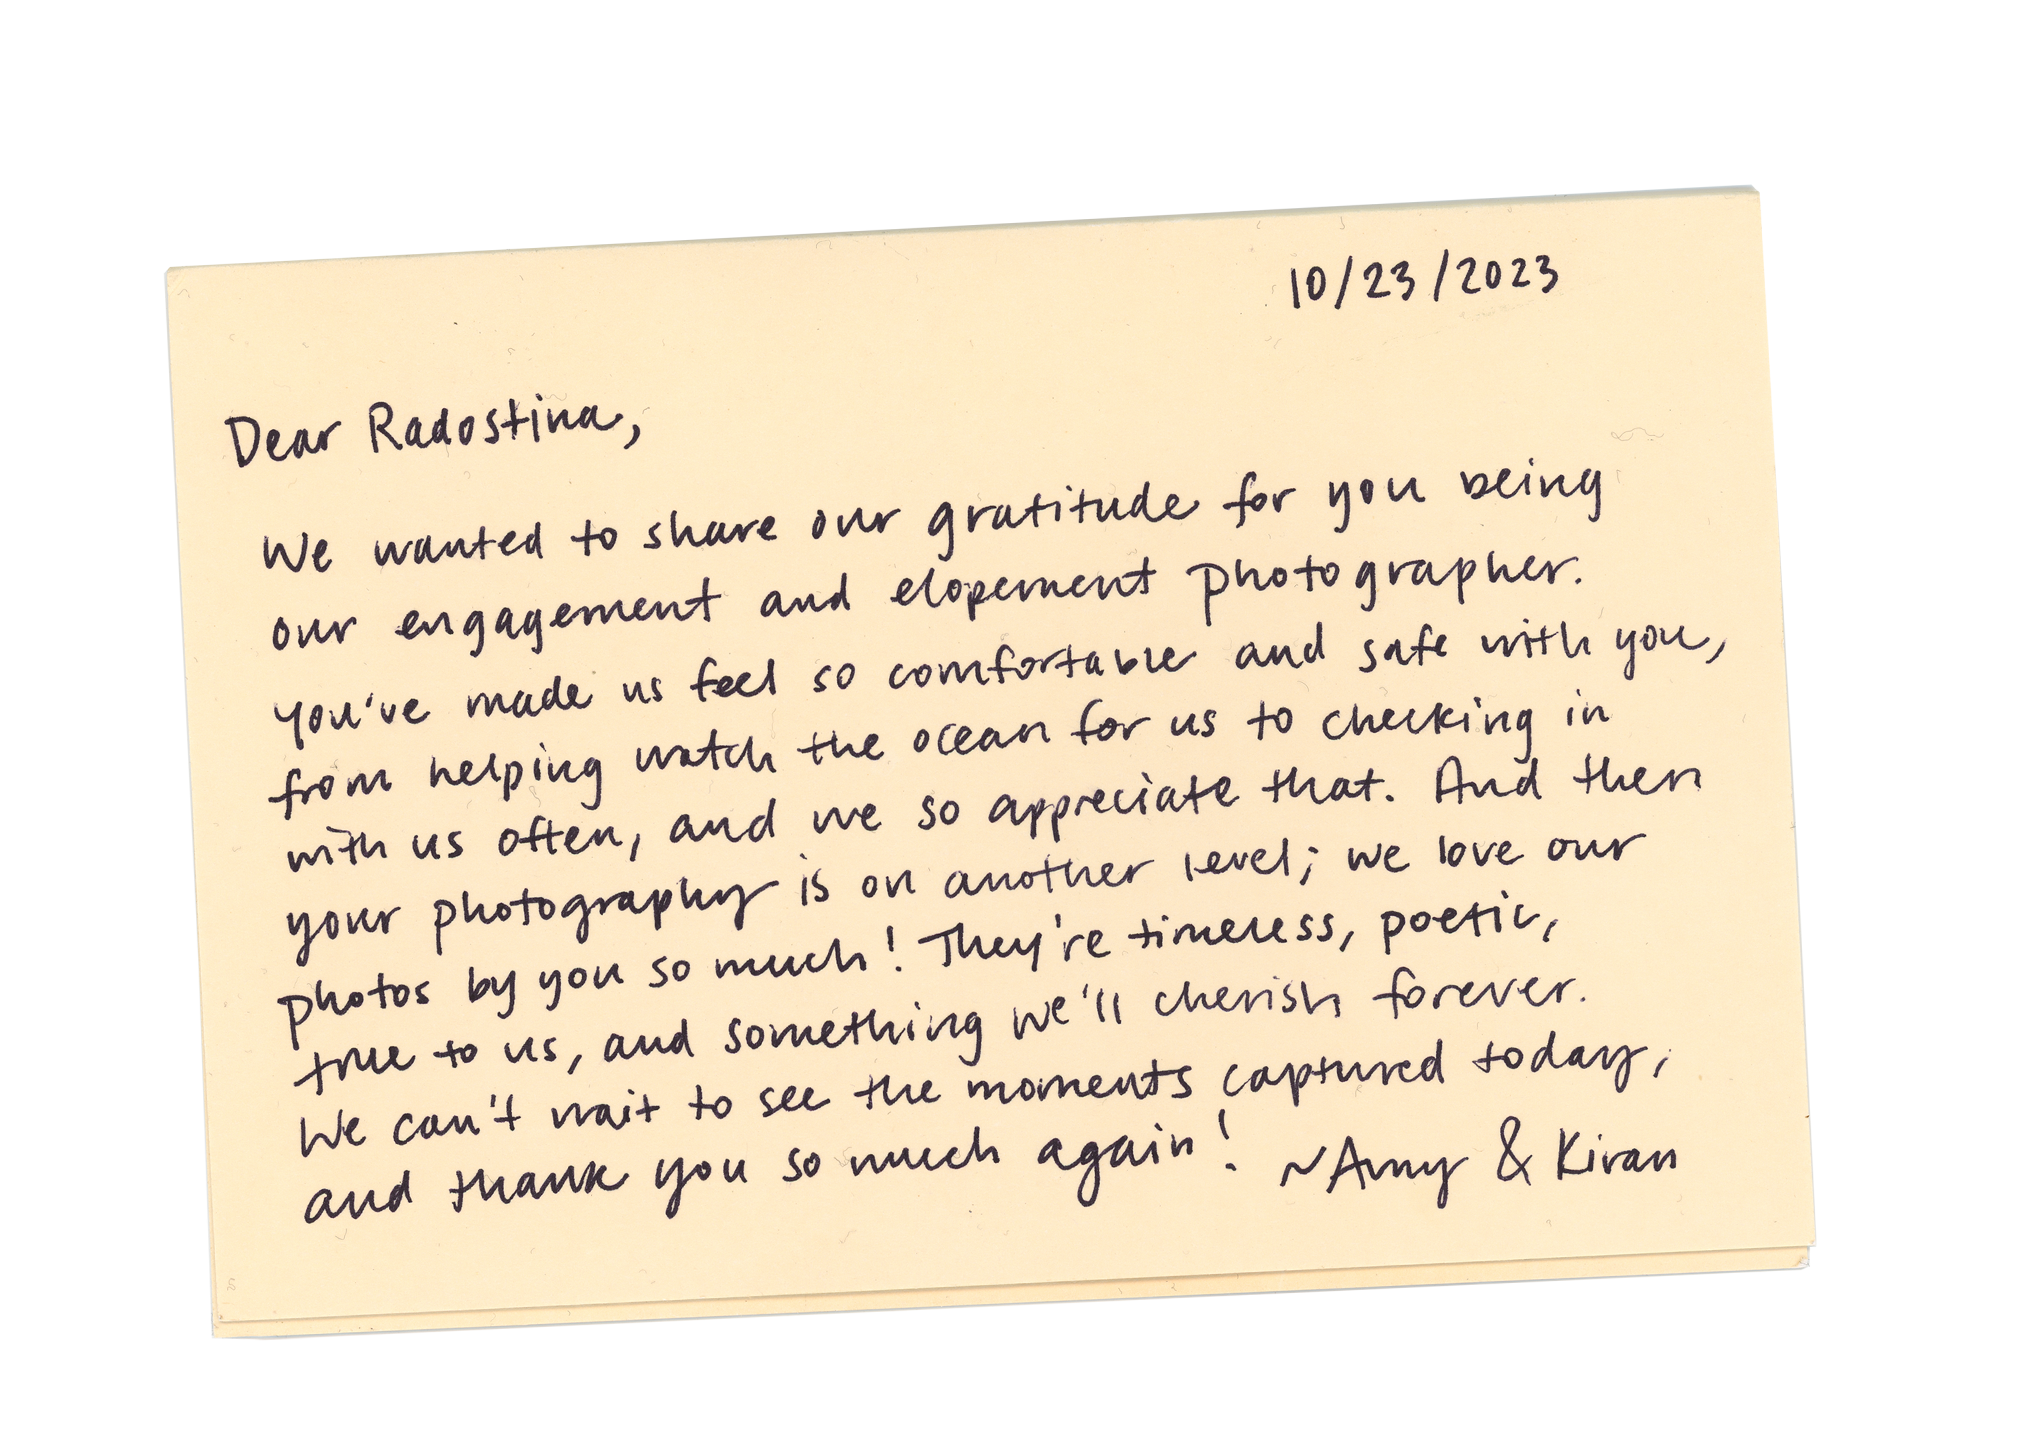 10/23/2023
Dear Radostina,
We wanted to share our gratitude for you being
our engagement and elopement photographer.
You've made us feel so comfortable and safe with you,
from helping watch the ocean for us to checking in
with us often, and we so appreciate that. And then
your photography is on another level; we love our
photos by you so much! They're timeless, poetic,
true to us, and something we'll cherish forever.
We can't wait to see the moments captured today,
and thank you so much again! ~Amy & Kiran